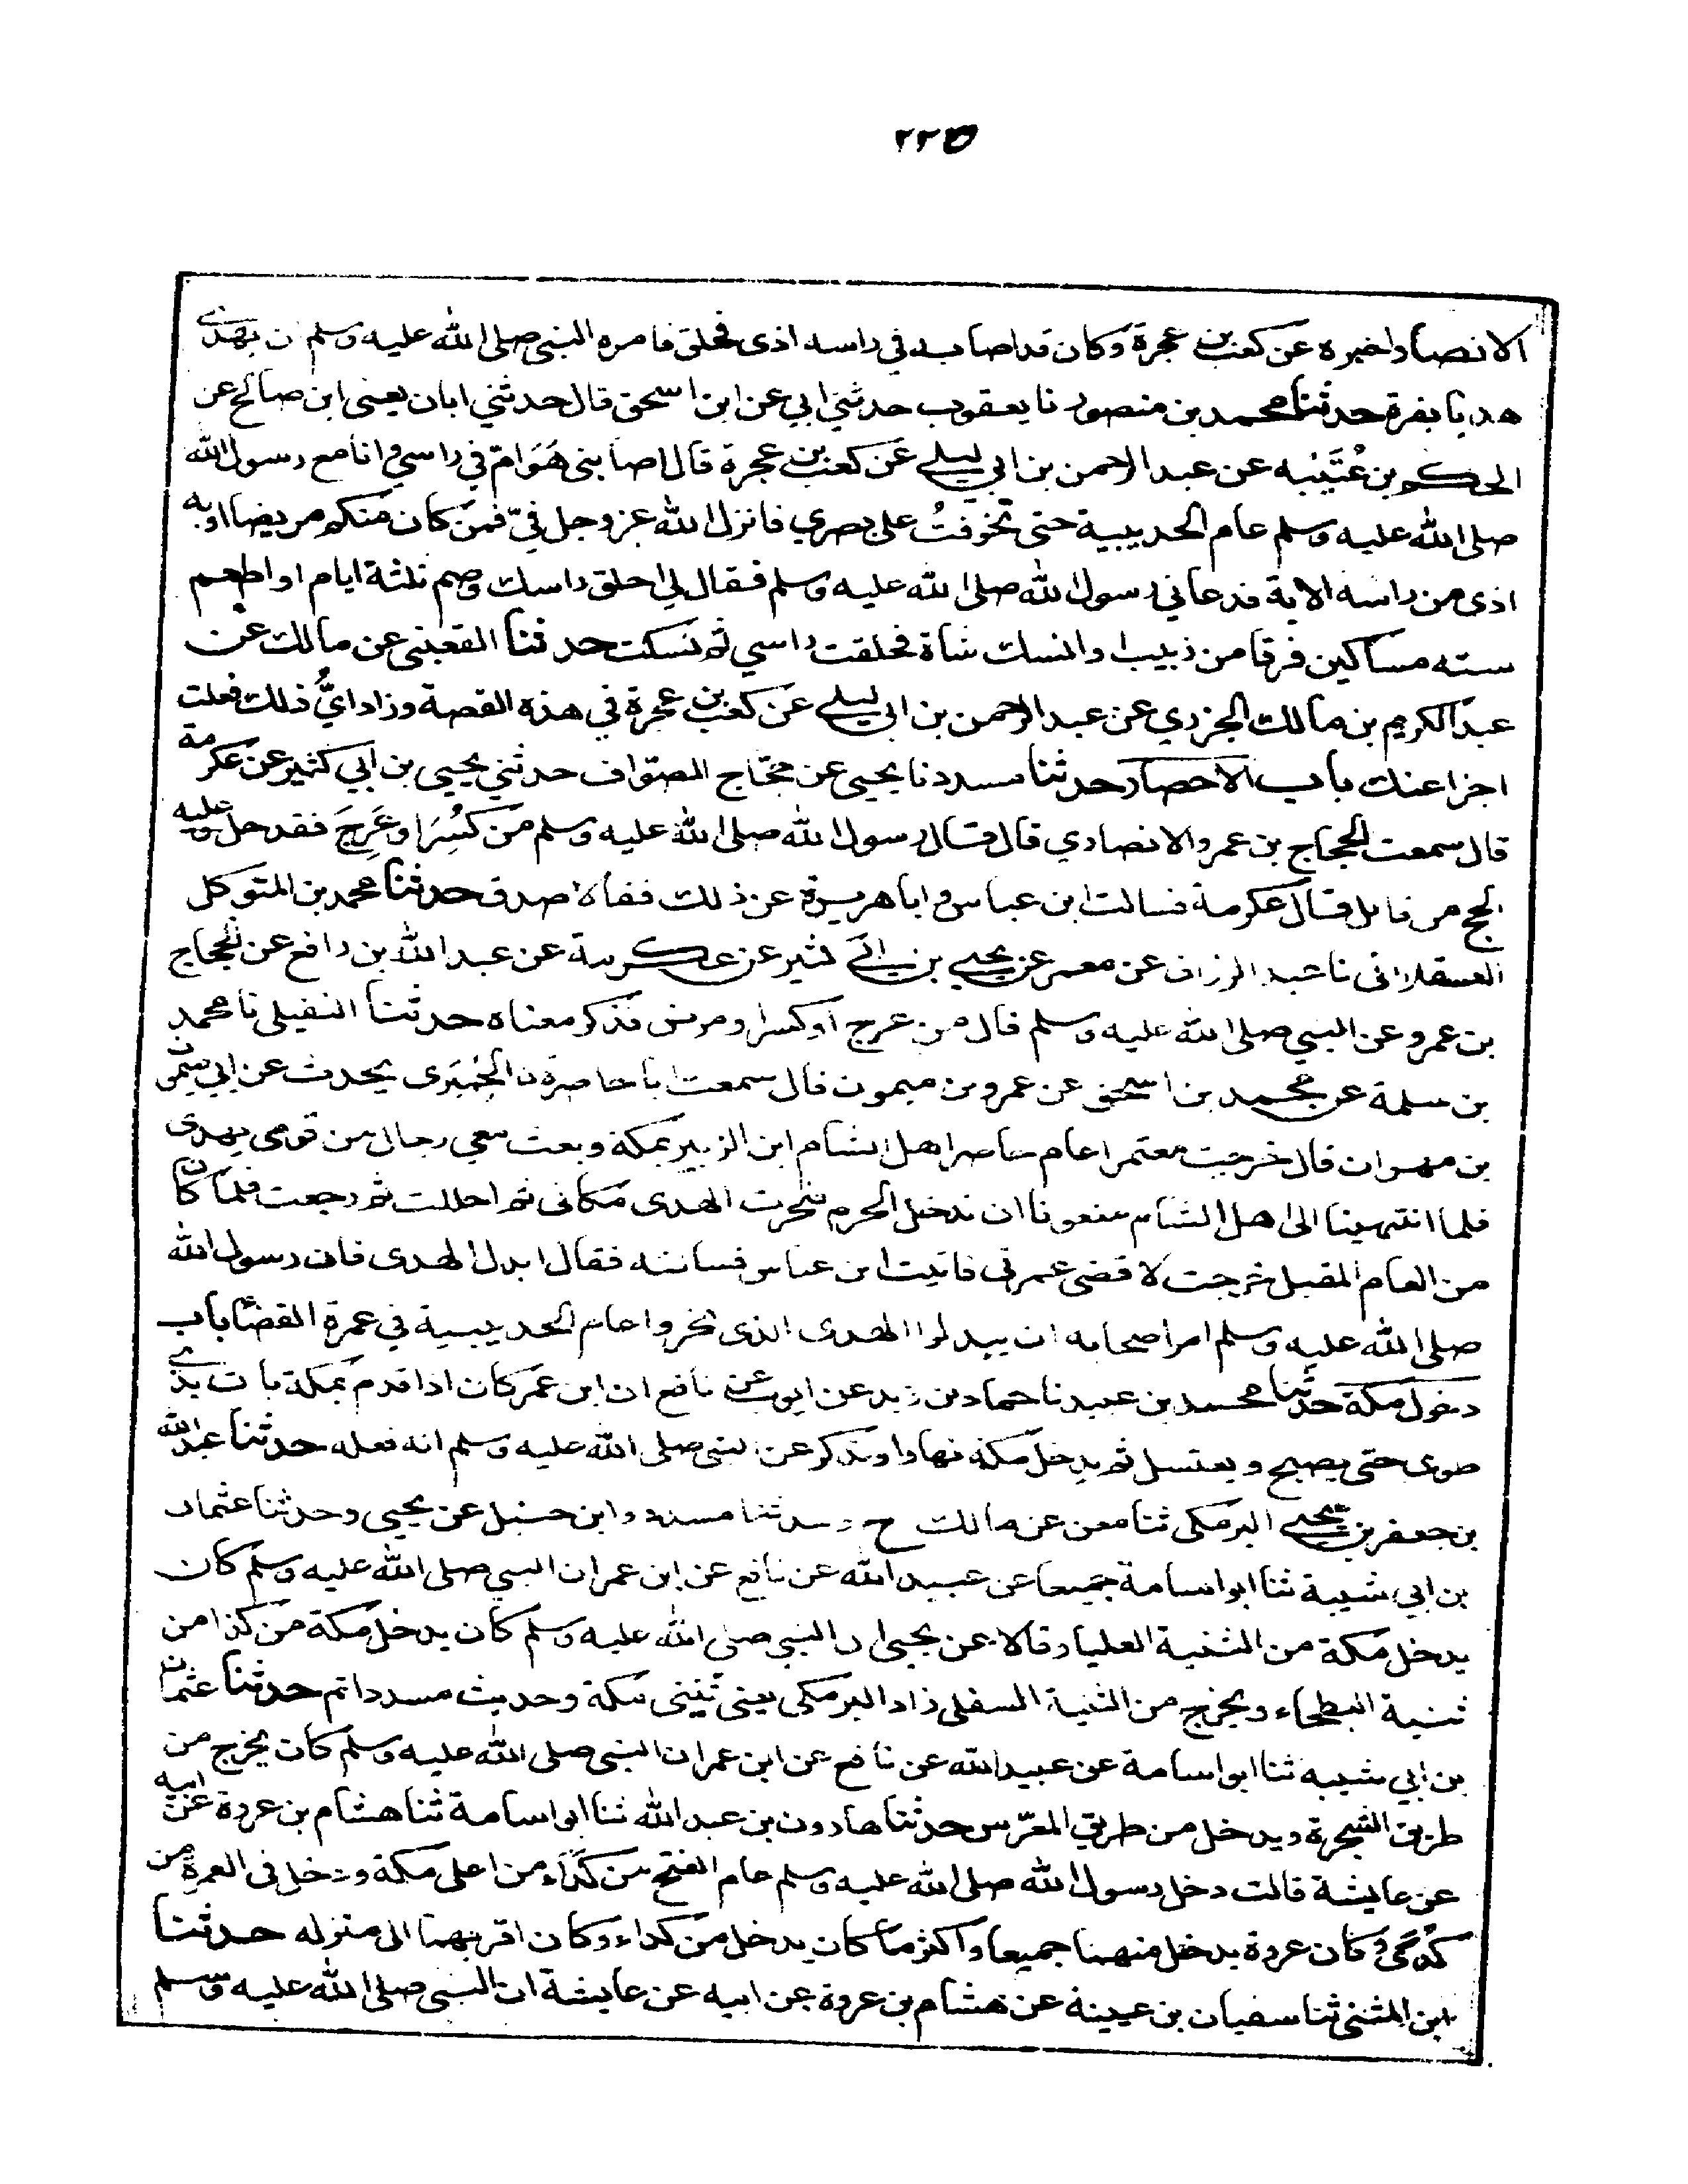 ٢٢٥
الانصار اخبره عن كعب بن عجرة وكان قد اصابه في راسه اذى فحلق فامره النبي صلى الله عليه وسلم ان يهدي
هديا بقرة حدثنا محمد بن منصور نا يعقوب حدثني ابي عن ابن اسحق قال حدثني ابان يعنى ابن صالح عن
الحكم بن عُتَيْبه عن عبد الرحمن بن ابي ليلى عن كعب بن عجرة قال اصابني هَوَامّ في راسي وانا مع رسول الله
صلى الله عليه وسلم عام الحديبية حتى تخوفتُ على بصري فانزل الله عز وجل فيّ فمن كان منكم مريضا او به
اذى من راسه الاية فدعاني رسول الله صلى الله عليه وسلم فقال لي احلق راسك وصم ثلثة ايام او اطعم
سته مساكين فرقا من زبيب او انسك شاة فحلقت راسي ثم نسكت حدثنا القعنبى عن مالك عن
عبد الكريم بن مالك الجزري عن عبد الرحمن بن ابي ليلى عن كعب بن عجرة في هذه القصة وزاد ايُّ ذلك فعلت
اجزا عنك باب الاحصار حدثنا مسدد نا يحيى عن حجّاج الصوّاف حدثني يحيى بن ابي كثير عن عكرمة
قال سمعت الحجاج بن عمرو الانصاري قال قال رسول الله صلى الله عليه وسلم من كُسِرَ او عَرِجَ فقد حل وعليه
الحج من قابل قال عكرمة فسالت ابن عباس وابا هريرة عن ذلك فقالا صدق حدثنا محمد بن المتوكل
العسقلانى نا عبد الرزاق عن معمر عن يحيى بن ابي كثير عن عكرمة عن عبد الله بن رافع عن الحجاج
بن عمرو عن النبي صلى الله عليه وسلم قال من عرج او كسر او مرض فذكر معناه حدثنا النفيلى نا محمد
بن سلمة عن محمد بن اسحق عن عمرو بن ميمون قال سمعت ابا حاصرة الحِمْيَرى يحدث عن ابي ميمون
بن مهران قال خرجت معتمرا عام حاصر اهل الشام ابن الزبير بمكة وبعث معي رجال من قومى بهدى
فلما انتهينا الى اهل الشام منعونا ان ندخل الحرم فنحرت الهدى مكانى ثم احللت ثم رجعت فلما كان
من العام المقبل خرجت لاقضى عمرتى فاتيت ابن عباس فسالته فقال ابدل الهدى فان رسول الله
صلى الله عليه وسلم امر اصحابه ان يبدلوا الهدى الذى نحروا عام الحديبية في عمرة القضا باب
دخول مكة حدثنا محمد بن عبيد نا حماد بن زيد عن ايوب عن نافع ان ابن عمر كان اذا قدم بمكة بات بذي
طوى حتى يصبح ويغتسل ثم يدخل مكة نهارا ويذكر عن النبي صلى الله عليه وسلم انه فعله حدثنا عبد الله
بن جعفر بن يحيى البرمكى ثنا معن عن مالك ح وحدثنا مسدد وابن حنبل عن يحيى وحدثنا عثمان
بن ابي شيبة ثنا ابو اسامة جميعا عن عبيد الله عن نافع عن ابن عمر ان النبي صلى الله عليه وسلم كان
يدخل مكة من الثنية العليا وقالا عن يحيى ان النبي صلى الله عليه وسلم كان يدخل مكة من كدا من
ثنية البطحاء ويخرج من الثنية السفلى زاد البرمكى يعني ثنيتى مكة وحديث مسدد اتم حدثنا عثمان
بن ابي شيبه ثنا ابو اسامة عن عبيد الله عن نافع عن ابن عمر ان النبي صلى الله عليه وسلم كان يخرج من
طريق الشجرة ويدخل من طريق المعرّس حدثنا هارون بن عبد الله ثنا ابو اسامة ثنا هشام بن عروة عن ابيه
عن عايشة قالت دخل رسول الله صلى الله عليه وسلم عام الفتح من كَدَاء من اعلى مكة ودخل فى العمرة من
كُدًى وكان عروة يدخل منهما جميعا واكثر ما كان يدخل من كداء وكان اقربهما الى منزله حدثنا
ابن المثنى ثنا سفيان بن عيينة عن هشام بن عروة عن ابيه عن عايشة ان النبي صلى الله عليه وسلم